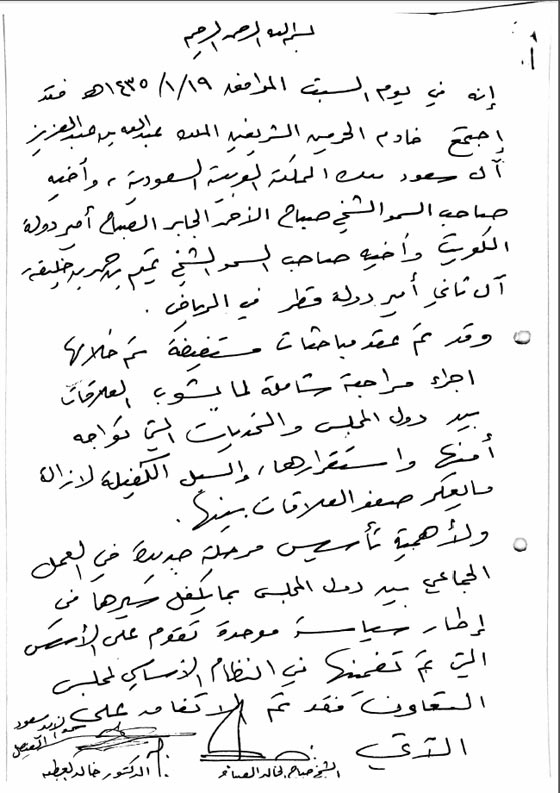 بسم الله الرحمن الرحيم
إنه في يوم السبت الموافق ١٤٣٥/١/١٩هـ فقد
اجتمع خادم الحرمين الشريفين الملك عبدالله بن عبدالعزيز
آل سعود ملك المملكة العربية السعودية، وأخيه
صاحب السمو الشيخ صباح الأحمد الجابر الصباح أمير دولة
الكويت وأخيه صاحب السمو الشيخ تميم بن حمد بن خليفة
آل ثاني أمير دولة قطر في الرياض.
وقد تم عقد مباحثات مستفيضة تم خلالها
اجراء مراجعة شاملة لما يشوب العلاقات
بين دول المجلس والتحديات التي تواجه
أمنها واستقرارها، والسبل الكفيلة لازالة
ما يعكر صفو العلاقات بينها.
ولأهمية تأسيس مرحلة جديدة في العمل
الجماعي بين دول المجلس بما يكفل سيرها في
إطار سياسة موحدة تقوم على الأسس
التي تم تضمينها في النظام الأساسي لمجلس
التعاون فقد تم الاتفاق على
الآتي
سعود الفيصل
الدكتور خالد العطية
الشيخ صباح الخالد الصباح